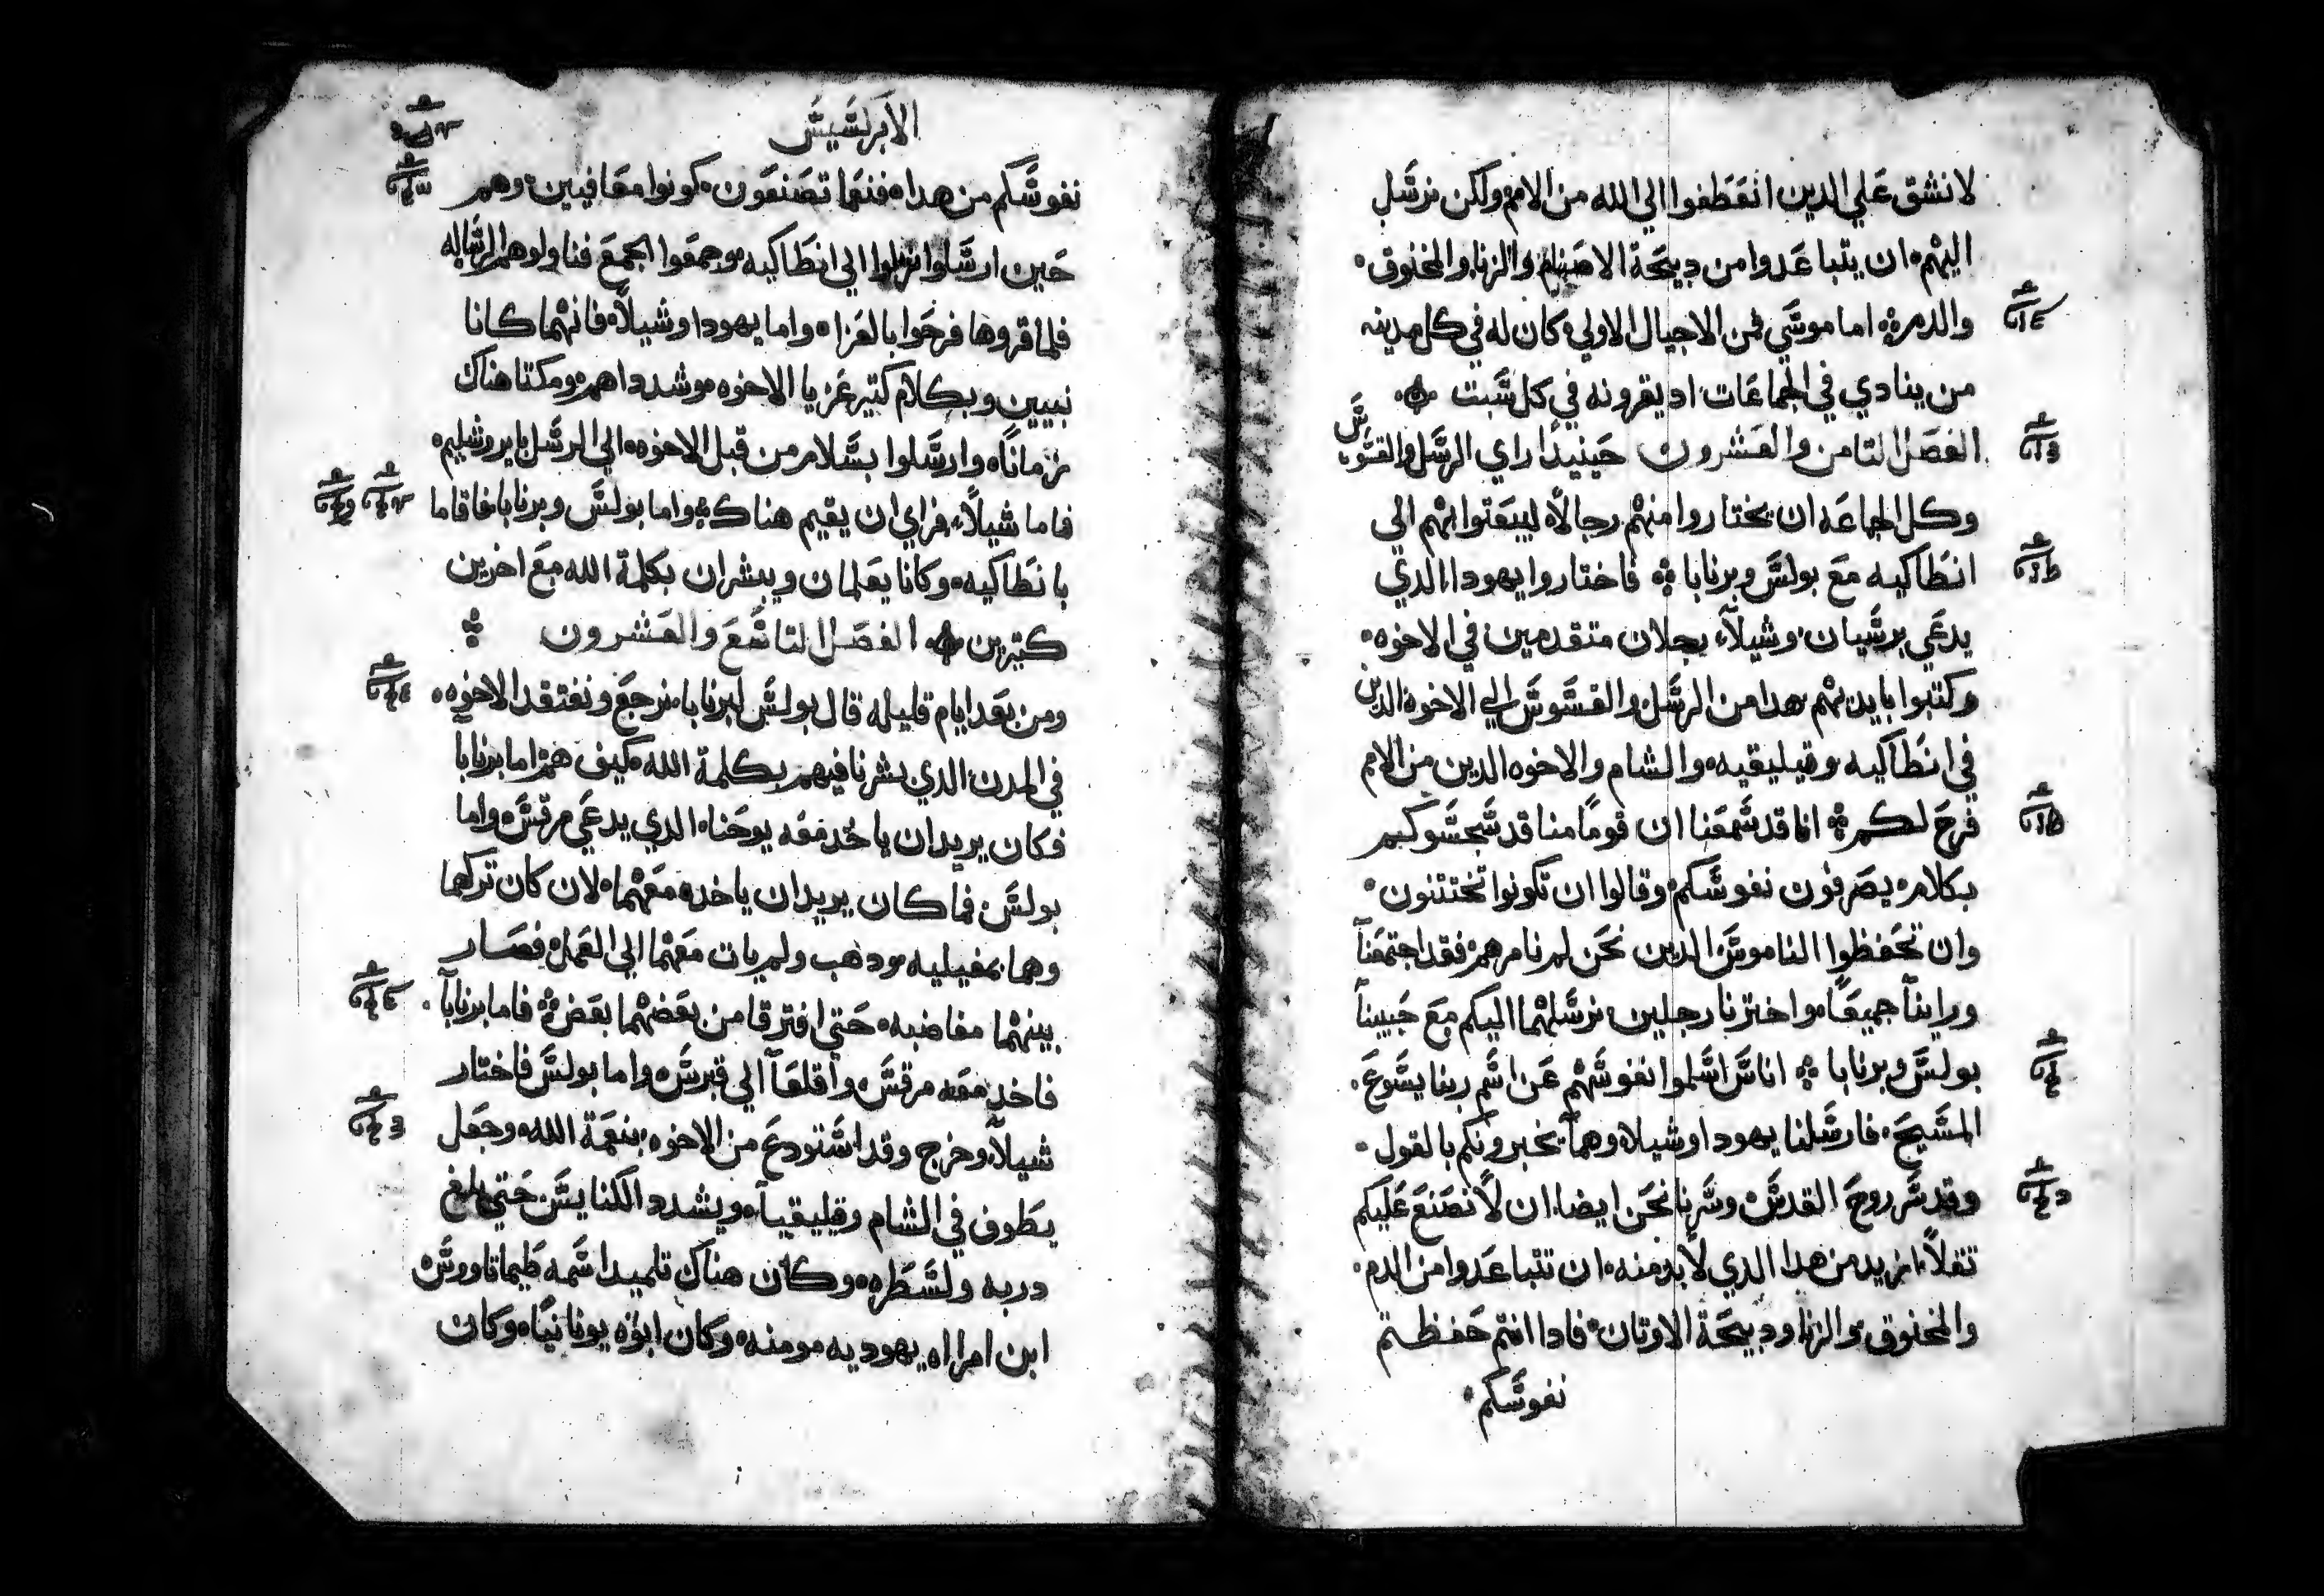 لا نشق علي الدين انعطفوا الي الله من الامم ولكن نرسل
اليهم ان يتباعدوا من دبيحة الاصنام والزنا والمخنوق
والدم اما موسي فمن الاجيال الاولي كان له في كل مدينه
من ينادي في الجماعات اد يقرونه في كل سبت
الفصل التامن والعشرون حينيدا راي الرسل والقسوس
وكل الجماعه ان يختاروا منهم رجالا ليبعتوا بهم الي
انطاكيه مع بولس وبرنابا فاختاروا يهودا الدي
يدعي برسبان وشيلا رجلان متقدمين في الاخوه
وكتبوا بايديهم هدا من الرسل والقسوس الي الاخوة الدين
في انطاكيه وقيليقيه والشام والاخوه الدين من الامم
فرح لكم انا قد سمعنا ان قوما منا قد سجسوكم
بكلام يصرفون نفوسكم وقالوا ان تكونوا تختتنون
وان تحفظوا الناموس الدين نحن لم نامرهم فقد اجتمعنا
وراينا جميعا واخترنا رجلين نرسلهما اليكم مع حبيبنا
بولس وبرنابا اناس اسلموا نفوسهم عن اسم ربنا يسوع
المسيح فارسلنا يهودا وشيلا وهما يخبرونكم بالقول
وقد سر روح القدس وسرنا نحن ايضا ان لا نصنع عليكم
تقلا ازيد من هدا الدي لا بد منه ان تتباعدوا من الدم
والمخنوق والزنا ودبيحة الاوتان فادا انتم حفظتم
نفوسكم
الابركسيس
نفوسكم من هداه فنعما تصنعون كونوا معافيين وهم
حين ارسلوا نزلوا الي انطاكيه وجمعوا الجمع فناولوهم الرساله
فلما قروها فرحوا بالعزا واما يهودا وشيلا فانهما كانا
نبيين وبكلام كتير عزيا الاخوه وشدداهم ومكتا هناك
زمانا وارسلوا بسلام من قبل الاخوه الي الرسل بايروشليم
فاما شيلا فراي ان يقيم هناك واما بولس وبرنابا فاقاما
بانطاكيه وكانا يعلمان ويبشران بكلمة الله مع اخرين
كتيرين الفصل التاسع والعشرون
ومن بعد ايام قليله قال بولس لبرنابا نرجع ونفتقد الاخوه
في المدن الدي بشرنا فيهم بكلمة الله كيف هم اما برنابا
فكان يريد ان ياخد معه يوحنا الدي يدعي مرقس واما
بولس فما كان يريد ان ياخده معهما لان كان تركهما
وهما بمفيليه ودهب ولم يات معهما الي العمل فصار
بينهما مغاضبه حتي افترقا من بعضهما بعض فاما برنابا
فاخد معه مرقس واقلعا الي قبرس واما بولس فاختار
شيلا وخرج وقد استودع من الاخوه بنعمة الله وجعل
يطوف في الشام وقيليقيا ويشدد الكنايس حتي بلغ
دربه ولسطره وكان هناك تلميدا اسمه طيماتاووس
ابن امراه يهوديه مومنه وكان ابوه يونانيا وكان